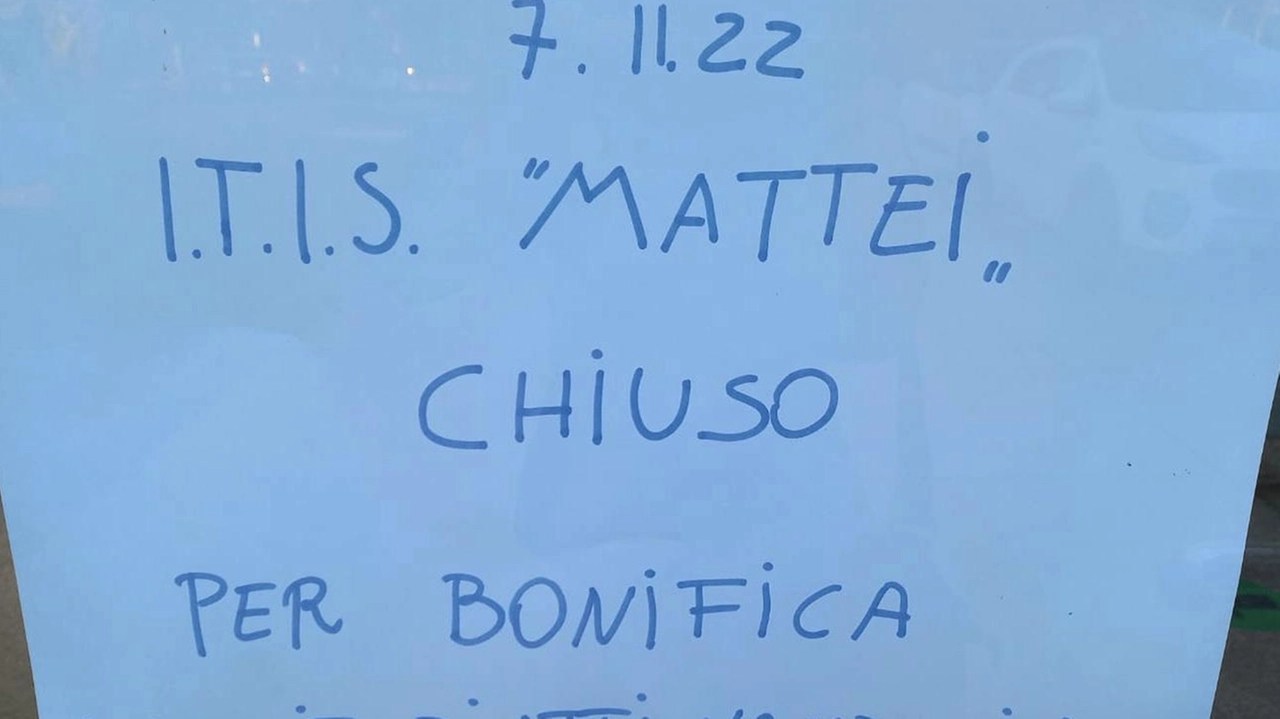 7.11.22
I.T.I.S. "MATTEI„
CHIUSO
PER BONIFICA